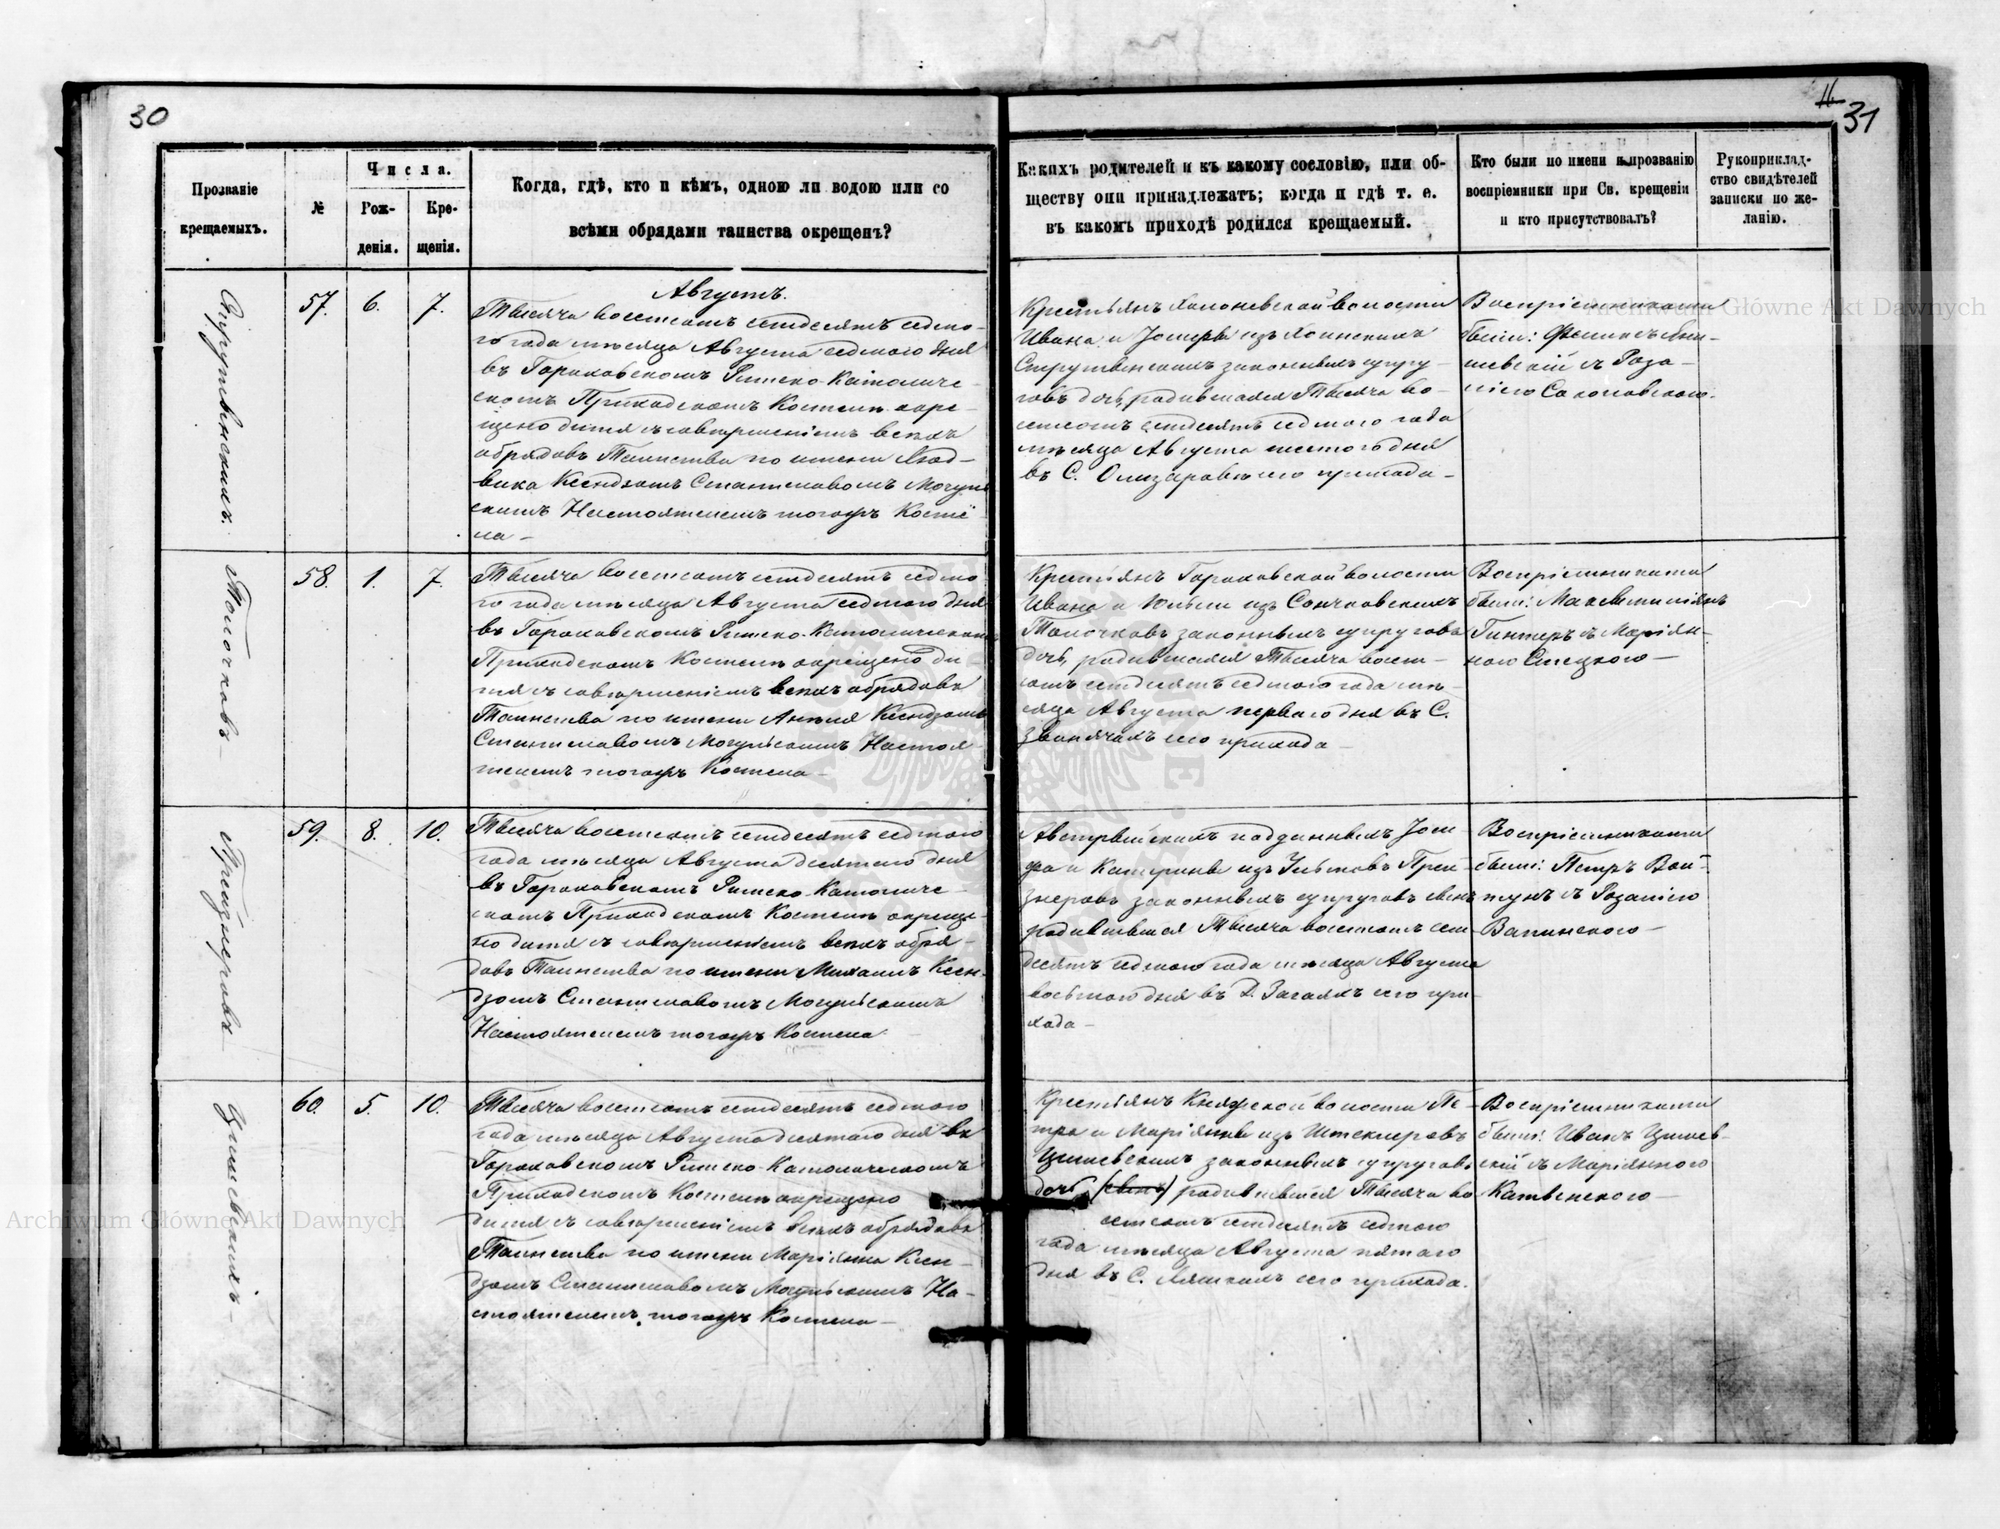 30
11
31
Прозваніе
крещаемыхъ.
№
Числа.
Рож-
денія.
Кре-
щенія.
Когда, гдѣ, кто и кѣмъ, одною ли водою или со
всѣми обрядами таинства окрещенъ?
Какихъ родителей и къ какому сословію, или об-
ществу они принадлежатъ; когда и гдѣ т. е.
въ какомъ приходѣ родился крещаемый.
Кто были по имени и прозванію
воспріемники при Св. крещеніи
и кто присутствовалъ?
Рукоприклад-
ство свидѣтелей
записки по же-
ланію.
57.
6.
7.
Августъ.
Тысяча восемсотъ семдесятъ седмо-
го года мѣсяца Августа седмого дня
въ Гороховскомъ Римско-Католиче-
скомъ Приходскомъ Костелѣ окре-
щено дитя съ совершеніемъ всѣхъ
обрядовъ Таинства по имени Люд-
вика Ксендзомъ Станиславомъ
скимъ Настоятелемъ тогожъ Костё
ла-
Крестьянъ волости
Ивана и Іозефы изъ
законныхъ супру-
говъ дочь, родившаяся Тысяча во-
семсотъ семдесятъ седмого года
мѣсяца Августа шестого дня
въ С. его прихода-
Воспріемниками
были:
съ Роза-
ліею
Толочковъ-
58.
1.
7.
Тысяча восемсотъ семдесятъ седмо-
го года мѣсяца Августа седмого дня
въ Гороховскомъ Римско-Католическомъ
Приходскомъ Костелѣ окрещено ди-
тя съ совершеніемъ всѣхъ обрядовъ
Таинства по имени Анѣля Ксендзомъ
Станиславомъ Настоя-
телемъ тогожъ Костела-
Крестьянъ Гороховской волости
Ивана и изъ
Толочковъ законныхъ супруговъ
дочь, родившаяся Тысяча восем-
сотъ семдесятъ седмого года мѣ-
сяца Августа перваго дня въ С.
Звинячахъ его прихода-
Воспріемниками
были: Максимиліянъ
Гинтеръ съ Маріян-
ною
Прейзнеровъ
59.
8.
10.
Тысяча восемсотъ семдесятъ седмого
года мѣсяца Августа десятого дня
въ Гороховскомъ Римско-Католиче-
скомъ Приходскомъ Костелѣ окреще-
но дитя съ совершеніемъ всѣхъ обря-
довъ Таинства по имени Михаилъ Ксен-
дзомъ Станиславомъ
Настоятелемъ тогожъ Костела
Австрійскихъ подданныхъ Іози-
фа и Катерины изъ Прей-
знеровъ законныхъ супруговъ сынъ
родившійся Тысяча восемсотъ сем-
десятъ седмого года мѣсяца Августа
восьмого дня въ Д. его при-
хода-
Воспріемниками
были: Петръ Вой-
тунъ съ Розаліею
60.
5.
10.
Тысяча восемсотъ семдесятъ седмого
года мѣсяца Августа десятаго дня въ
Гороховскомъ Римско-Католическомъ
Приходскомъ Костелѣ окрещено
дитя съ совершеніемъ всѣхъ обрядовъ
Таинства по имени Маріянна Ксен-
дзомъ Станиславомъ На-
стоятелемъ, тогожъ Костела-
Крестьянъ волости Пе-
тра и Маріянны изъ Штеклеровъ
законныхъ супруговъ
дочь (сынъ) родившійся Тысяча во-
семсотъ семдесятъ седмого
года мѣсяца Августа пятаго
дня въ С. его прихода.
Воспріемниками
были: Иванъ
съ Маріянною
Archiwum Główne Akt Dawnych
Archiwum Główne Akt Dawnych